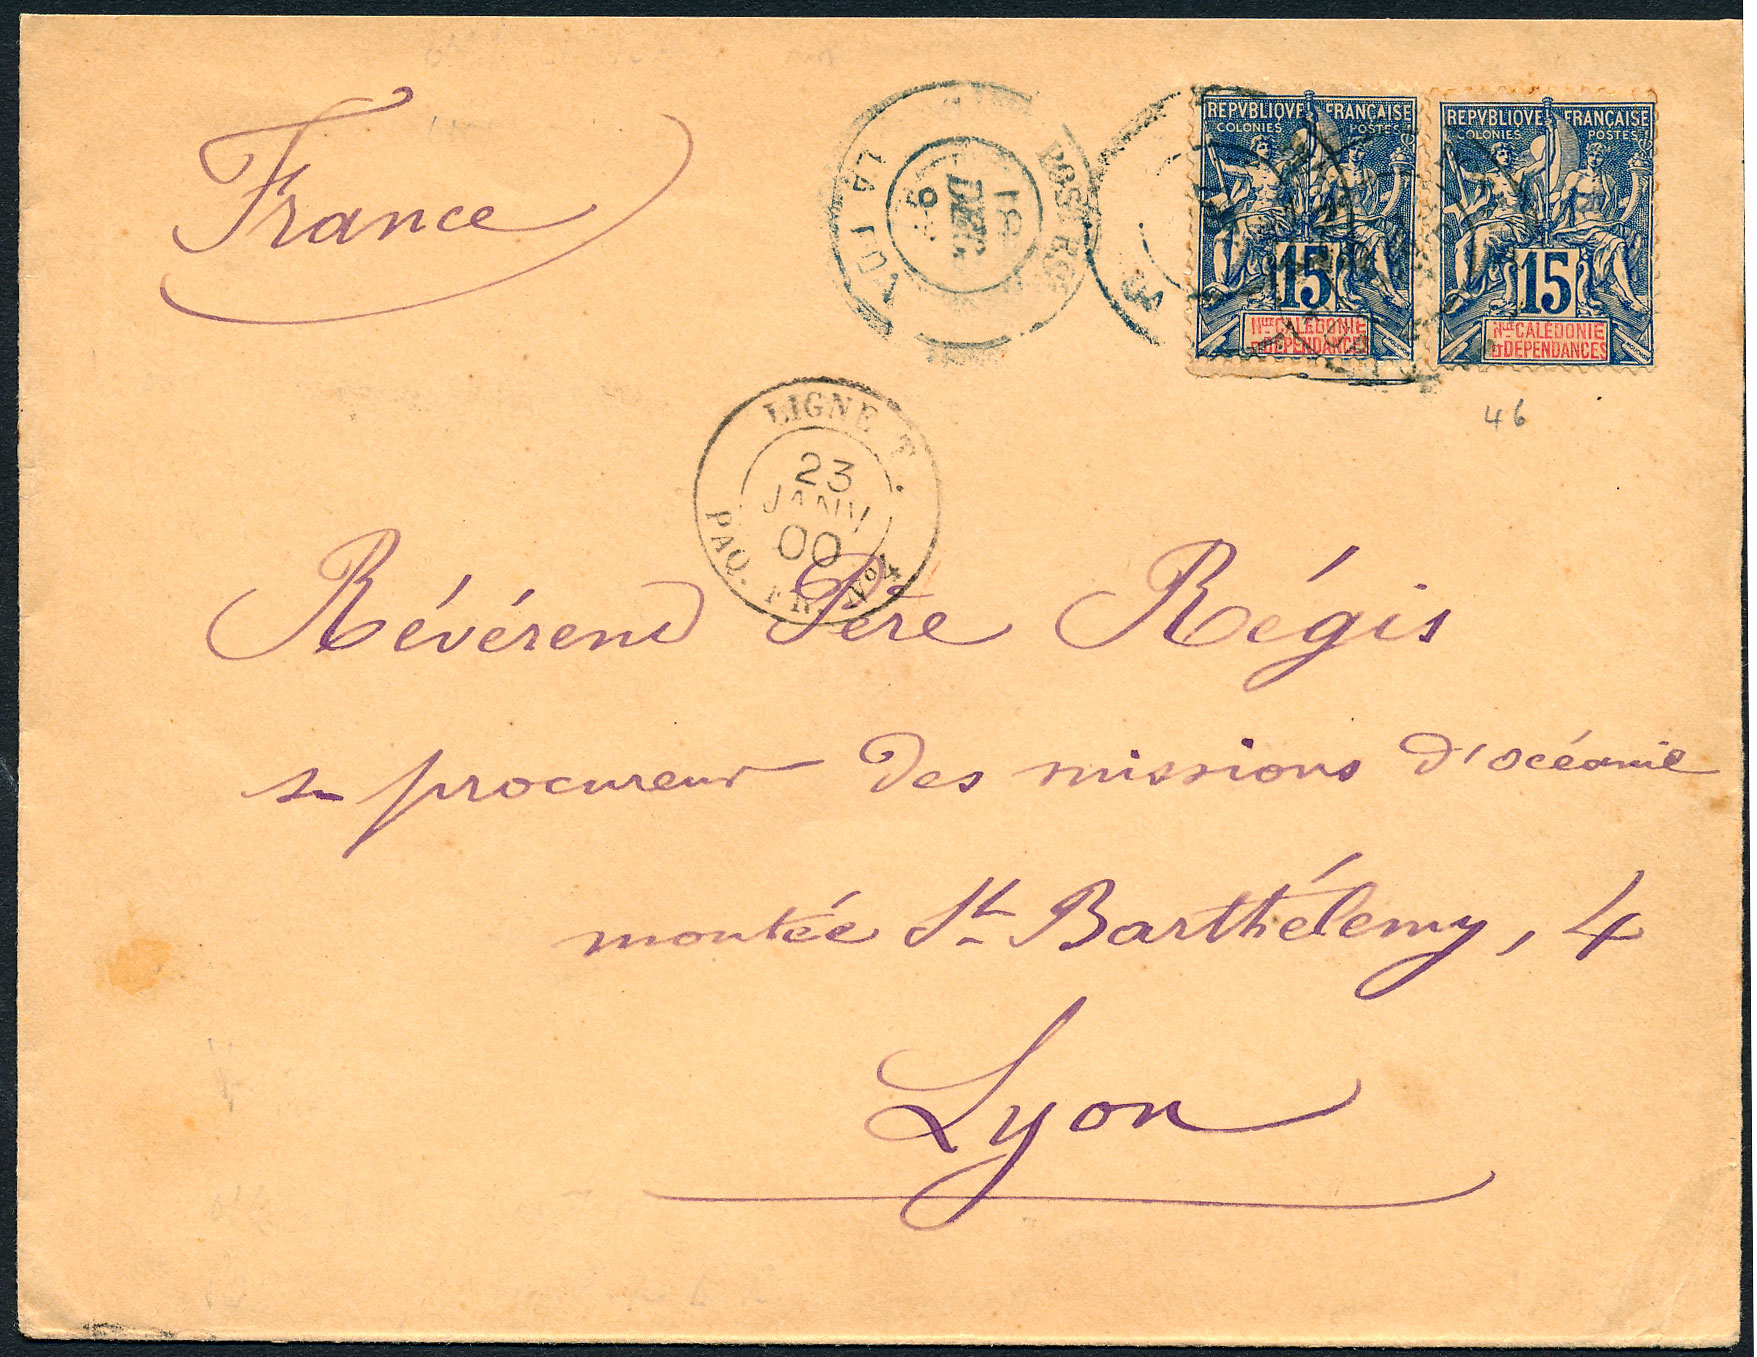 France
REPVBLIQVE FRANÇAISE
COLONIES POSTES
15
Nlle CALÉDONIE
ET DÉPENDANCES
REPVBLIQVE FRANÇAISE
COLONIES POSTES
15
Nlle CALÉDONIE
ET DÉPENDANCES
MOUCHON
46
LA FOA
DEC.
LIGNE T.
23
JANV
00
PAQ. FR. No 4
Révérend Père Régis
procureur des missions d'océanie
montée St Barthélemy, 4
Lyon